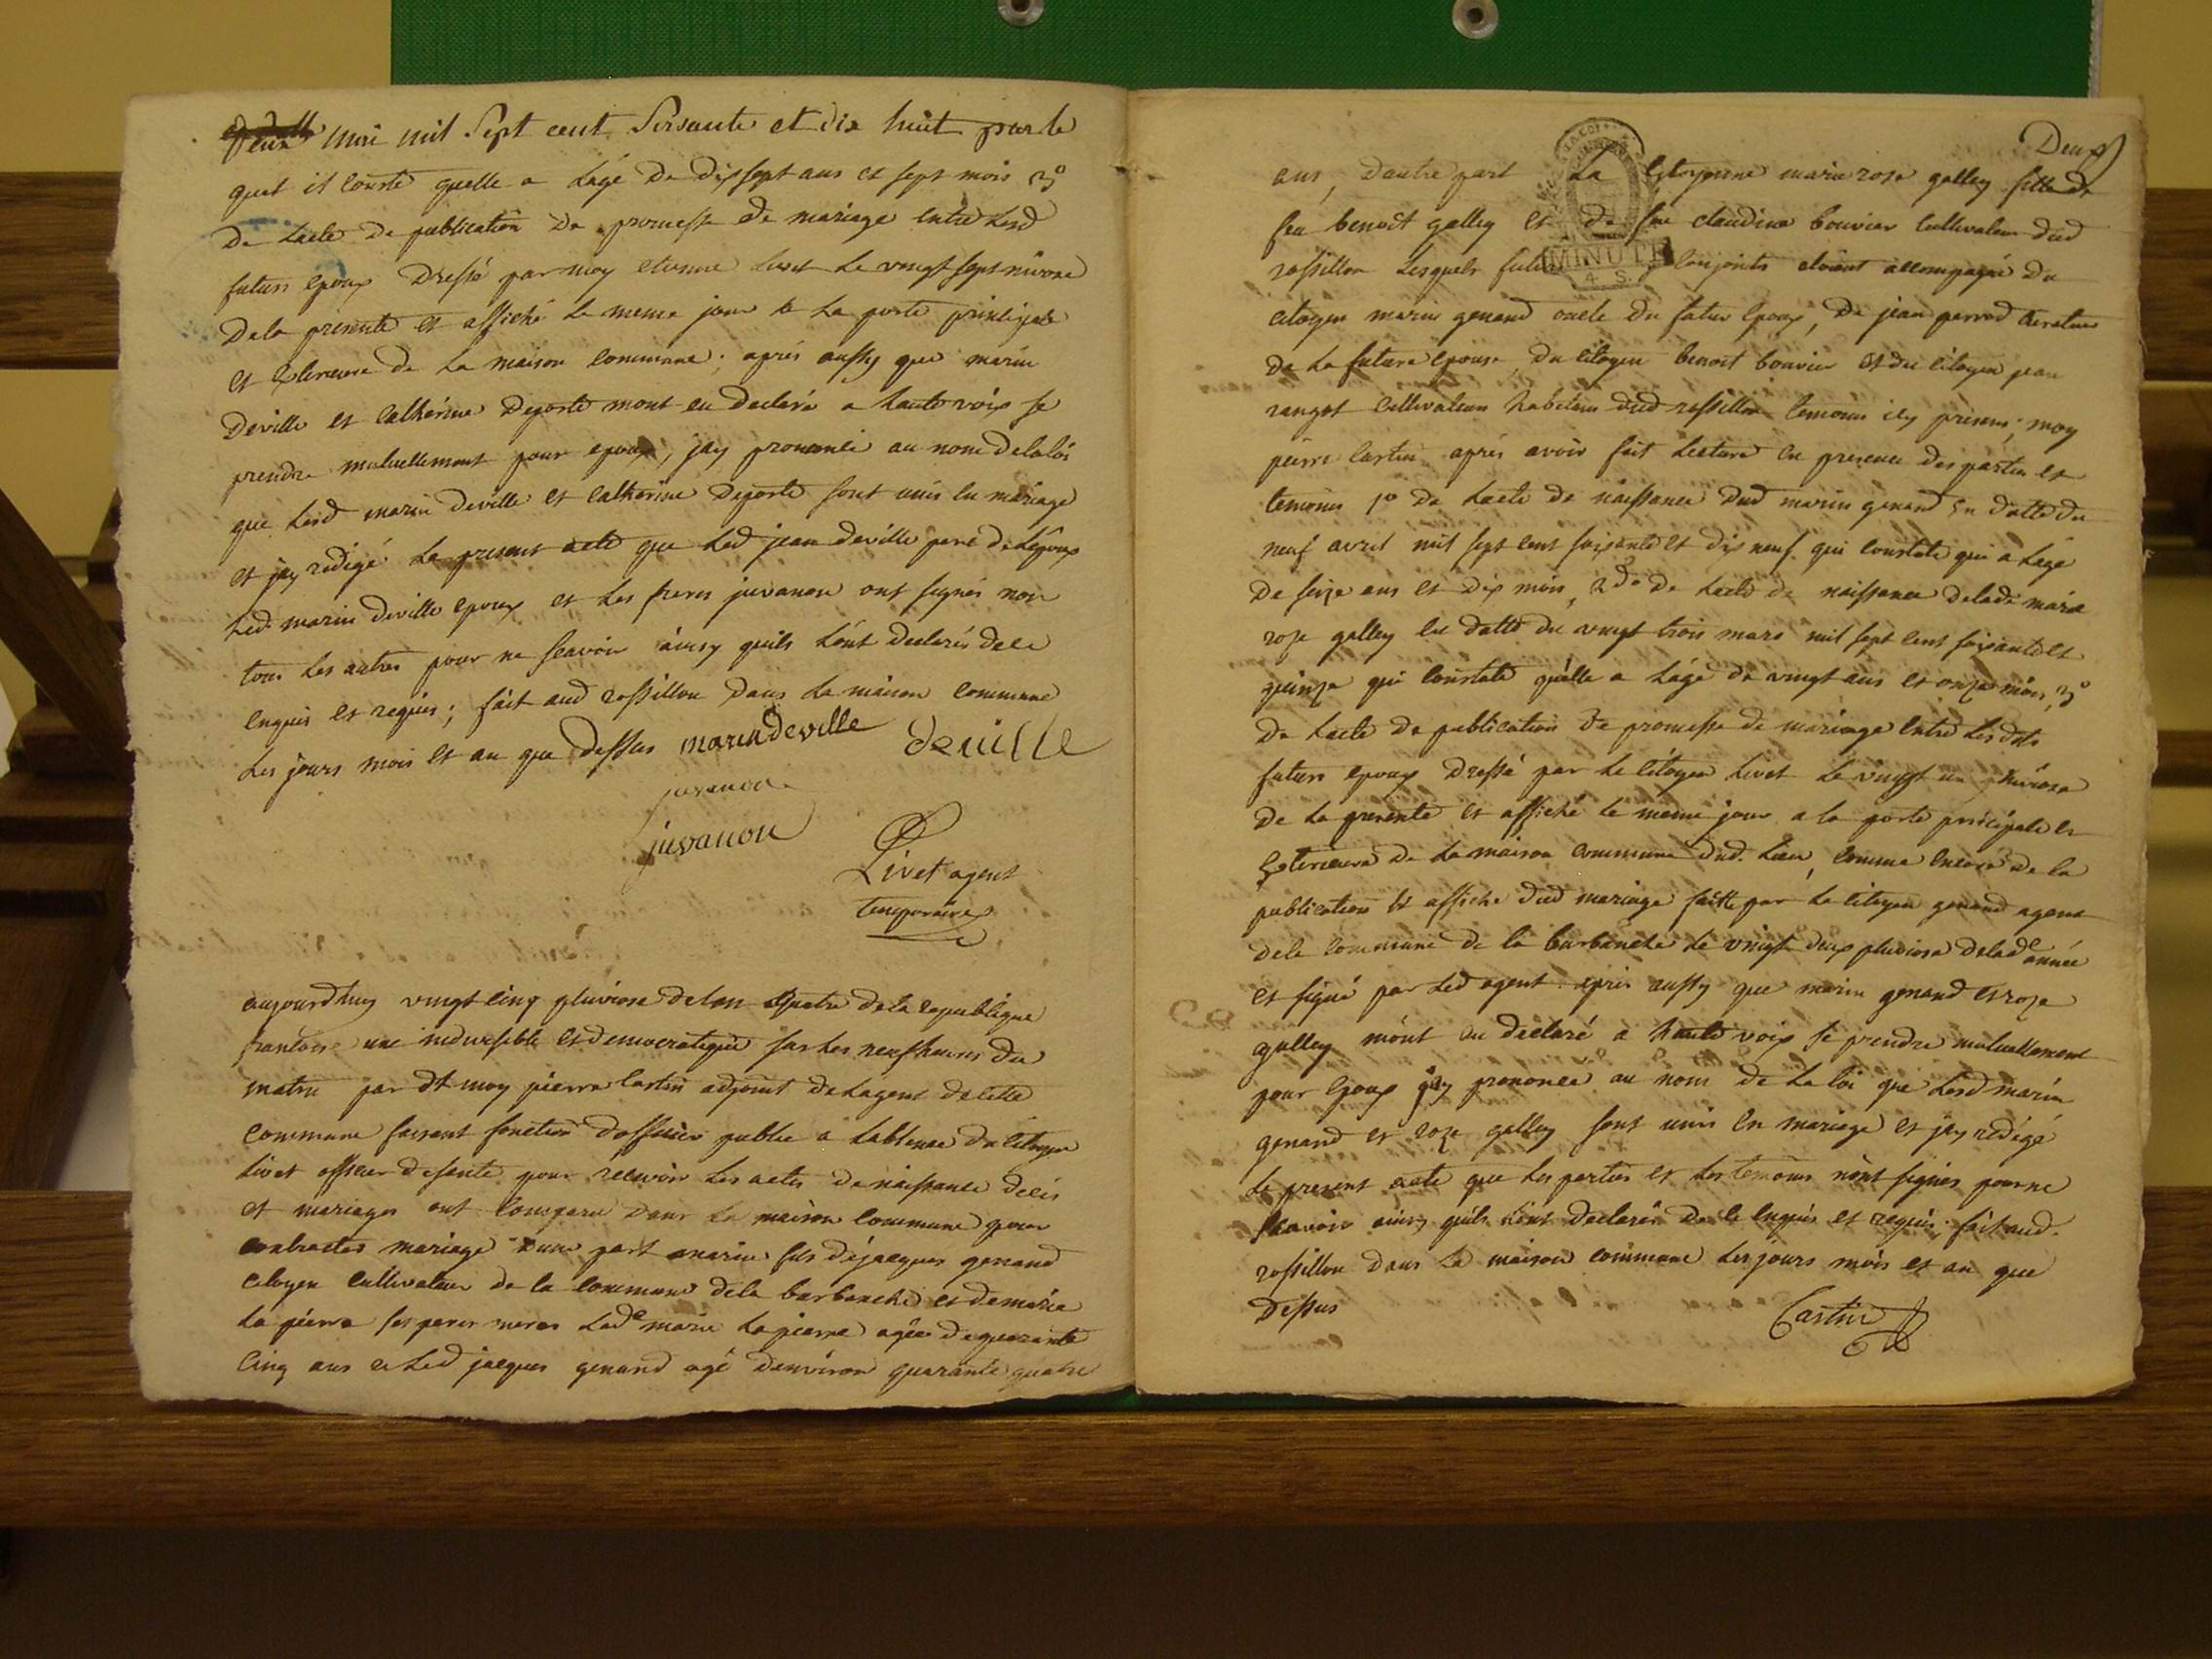 Deux mai mil Sept cent Soisante et dix huit par le
quel il conste quelle a Lagé de dix sept ans et sept mois 3º
de Lacte de publication de promesse de mariage entre Lesd
futurs epoux Dressé par moy etienne Livet Le vingt sept nivose
dela presente et affiché Le meme jour a La porte principale
et Exterieure de La maison Commune; aprés aussy que marin
Deville et Catherine Deporte mont eu declaré a haute voix se
prendre mutuellement pour epoux, jay prononcé au nom delaloi
que Lesd marin deville et Catherine Deporte sont unis en mariage
et jay redigé Le present acte que Led jean deville pere de Lepoux
Led. marin deville epoux et Les freres juvanon ont signés non
tous Les autres pour ne scavoir ainsy quils Lont declarés dece
enquis et requis; fait aud rossillon dans La maison commune
Les jours mois et an que dessus marin deville deville
juvanon
juvanon
Livet agent
temporaire
aujourdhuy vingt cinq pluviose de Lan Quatre de la republique
francoise une indivisible et democratique sur Les neuf heures du
matin par dt moy pierre Castin adjoint de Lagent de cette
Commune faisant fonction dofficier public a Labsence du Citoyen
Livet officier desente pour recevoir Les actes de naissance deces
et mariages ont Comparu dans La maison Commune pour
contracter mariage dune part marin fils de jacques genand
citoyen Cultivateur de la Commune dela burbanche et de marie
La pierre ses peres meres Lade marie Lapierre agée de quarante
Cinq ans et Led jacques genand agé denviron quarante quatre
Deux
ans, dautre part La Citoyenne marie rose galley fille de
feu benoit galley et de feue claudine bouvier Cultivateur dud
rossillon Lesquels futurs Conjoints etoient accompagné du
MINUTE
4. S.
citoyen marin genand oncle du futur epoux, de jean perrod Curateur
de La future epouse, du citoyen benoit bouvier et du citoyen jean
rangot Cultivateurs habitans dud rossillon temoins icy presens; moy
pierre Castin aprés avoir fait Lecture en presence des parties et
temoins 1º de Lacte de naissance dud marin genand En datte du
neuf avril mil sept cent soixante et dix neuf qui constate qui a Lage
de seize ans et dix mois, 2do de Lacte de naissance delade marie
roze galley en datte du vingt trois mars mil sept cent soixante et
quinze qui Constate quelle a Lagé de vingt ans et onze mois, 3º
de Lacte de publication de promesse de mariage entre Les dits
futurs epoux Dressé par Le Citoyen Livet Le vingt un nivose
de La presente et affiché Le meme jour a la porte principale et
Exterieure de La maison commune dud. Lieu, comme encore de la
publication et affiche dud mariage faitte par Le citoyen genand agent
dela Commune de la burbanche Le vingt deux pluviose delade année
et signé par Led agent. aprés aussy que marin genand et roze
galley mont eu declaré a haute voix se prendre mutuellement
pour Epoux jay prononcé au nom de La loi que Lesd marin
genand et roze galley sont unis en mariage et jay redigé
Le present acte que Les parties et Les temoins nont signés pour ne
scavoir ainsy quils Lont declarés de ce enquis et requis; fait aud.
rossillon dans La maison commune Les jours mois et an que
Dessus Castin